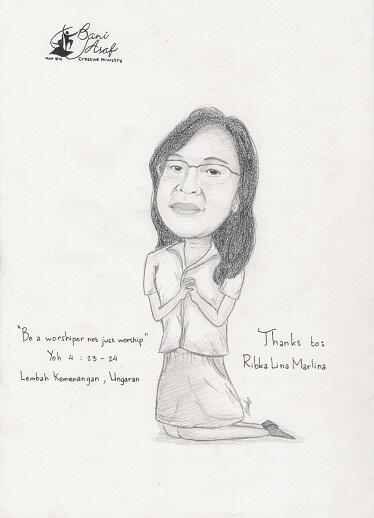 Bani
Asaf
Creative Ministry
"Be a worshiper not just worship"
Yoh 4 : 23 - 24
Lembah Kemenangan, Ungaran
Thanks to:
Ribka Lina Marlina